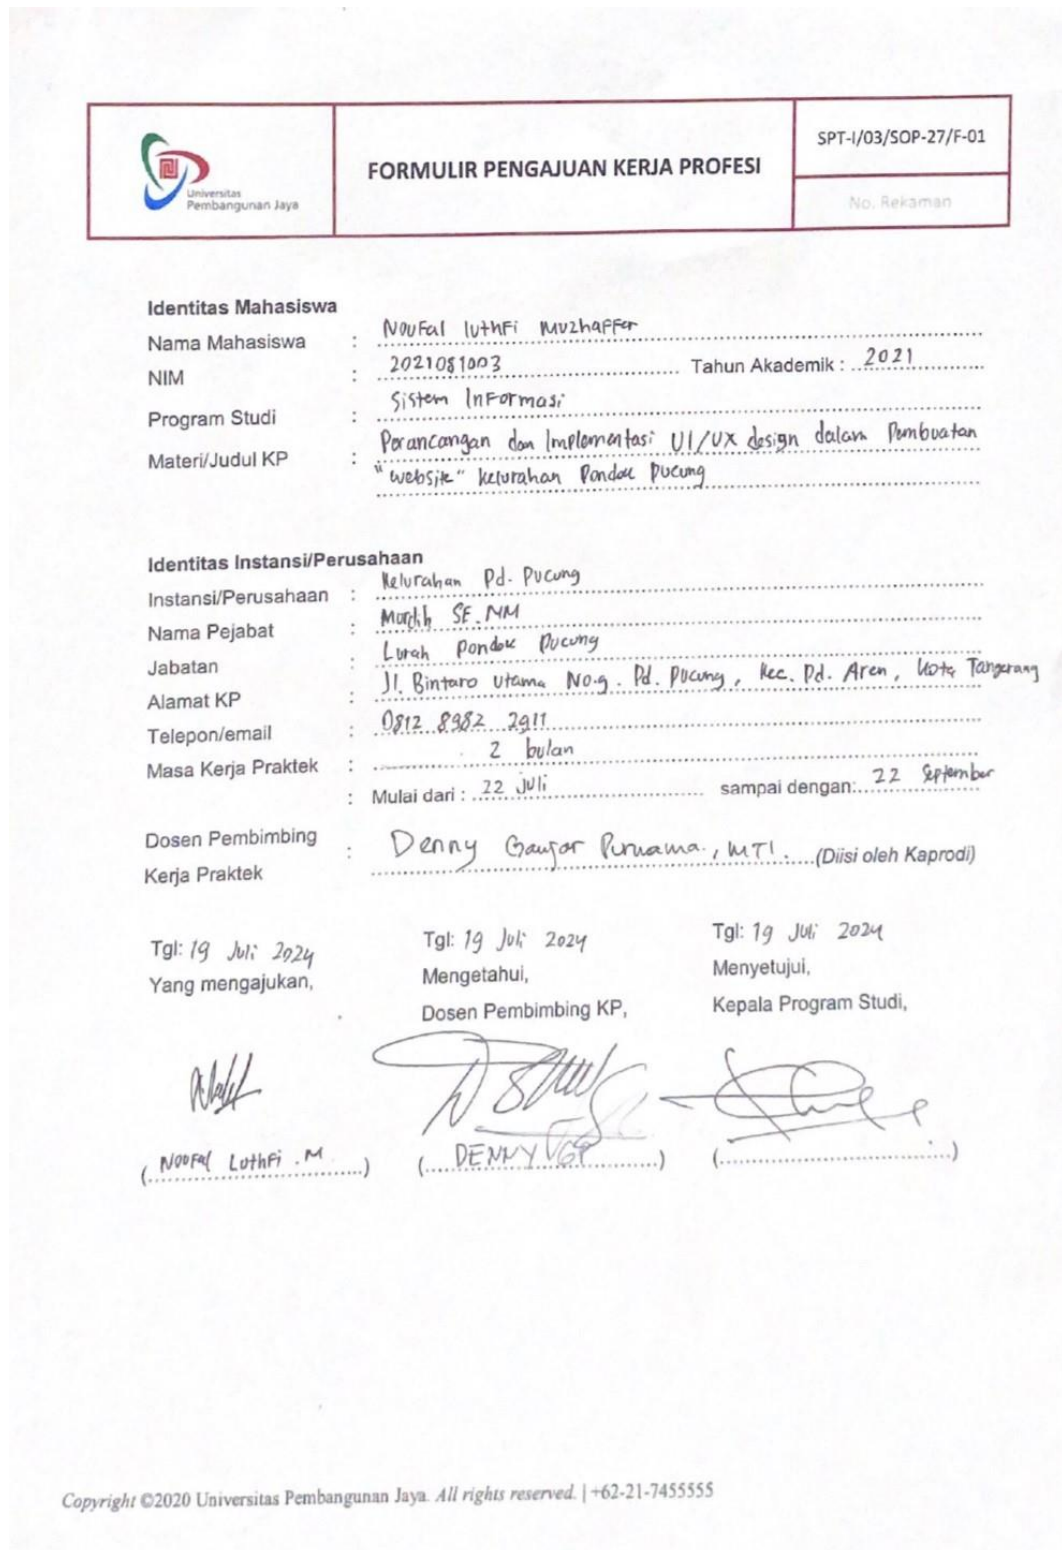 Universitas
Pembangunan Jaya
FORMULIR PENGAJUAN KERJA PROFESI
SPT-I/03/SOP-27/F-01
No. Rekaman
Identitas Mahasiswa
Nama Mahasiswa : Noufal luthfi muzhaffer
NIM : 2021081003 Tahun Akademik : 2021
Program Studi : Sistem Informasi
Materi/Judul KP : Perancangan dan Implementasi UI/UX design dalam Pembuatan
"website" kelurahan Pondok Pucung
Identitas Instansi/Perusahaan
Instansi/Perusahaan : Kelurahan Pd. Pucung
Nama Pejabat : SE.MM
Jabatan : Lurah Pondok Pucung
Alamat KP : Jl. Bintaro Utama No.9. Pd. Pucung, Kec. Pd. Aren, Kota Tangerang
Telepon/email : 0812 8982 2911
Masa Kerja Praktek : 2 bulan
: Mulai dari : 22 Juli sampai dengan: 22 September
Dosen Pembimbing
Kerja Praktek : Denny Ganjar Purnama., MTI. (Diisi oleh Kaprodi)
Tgl: 19 Juli 2024
Yang mengajukan,
(Noufal Luthfi .M)
Tgl: 19 Juli 2024
Mengetahui,
Dosen Pembimbing KP,
(DENNY)
Tgl: 19 Juli 2024
Menyetujui,
Kepala Program Studi,
Copyright ©2020 Universitas Pembangunan Jaya. All rights reserved. | +62-21-7455555